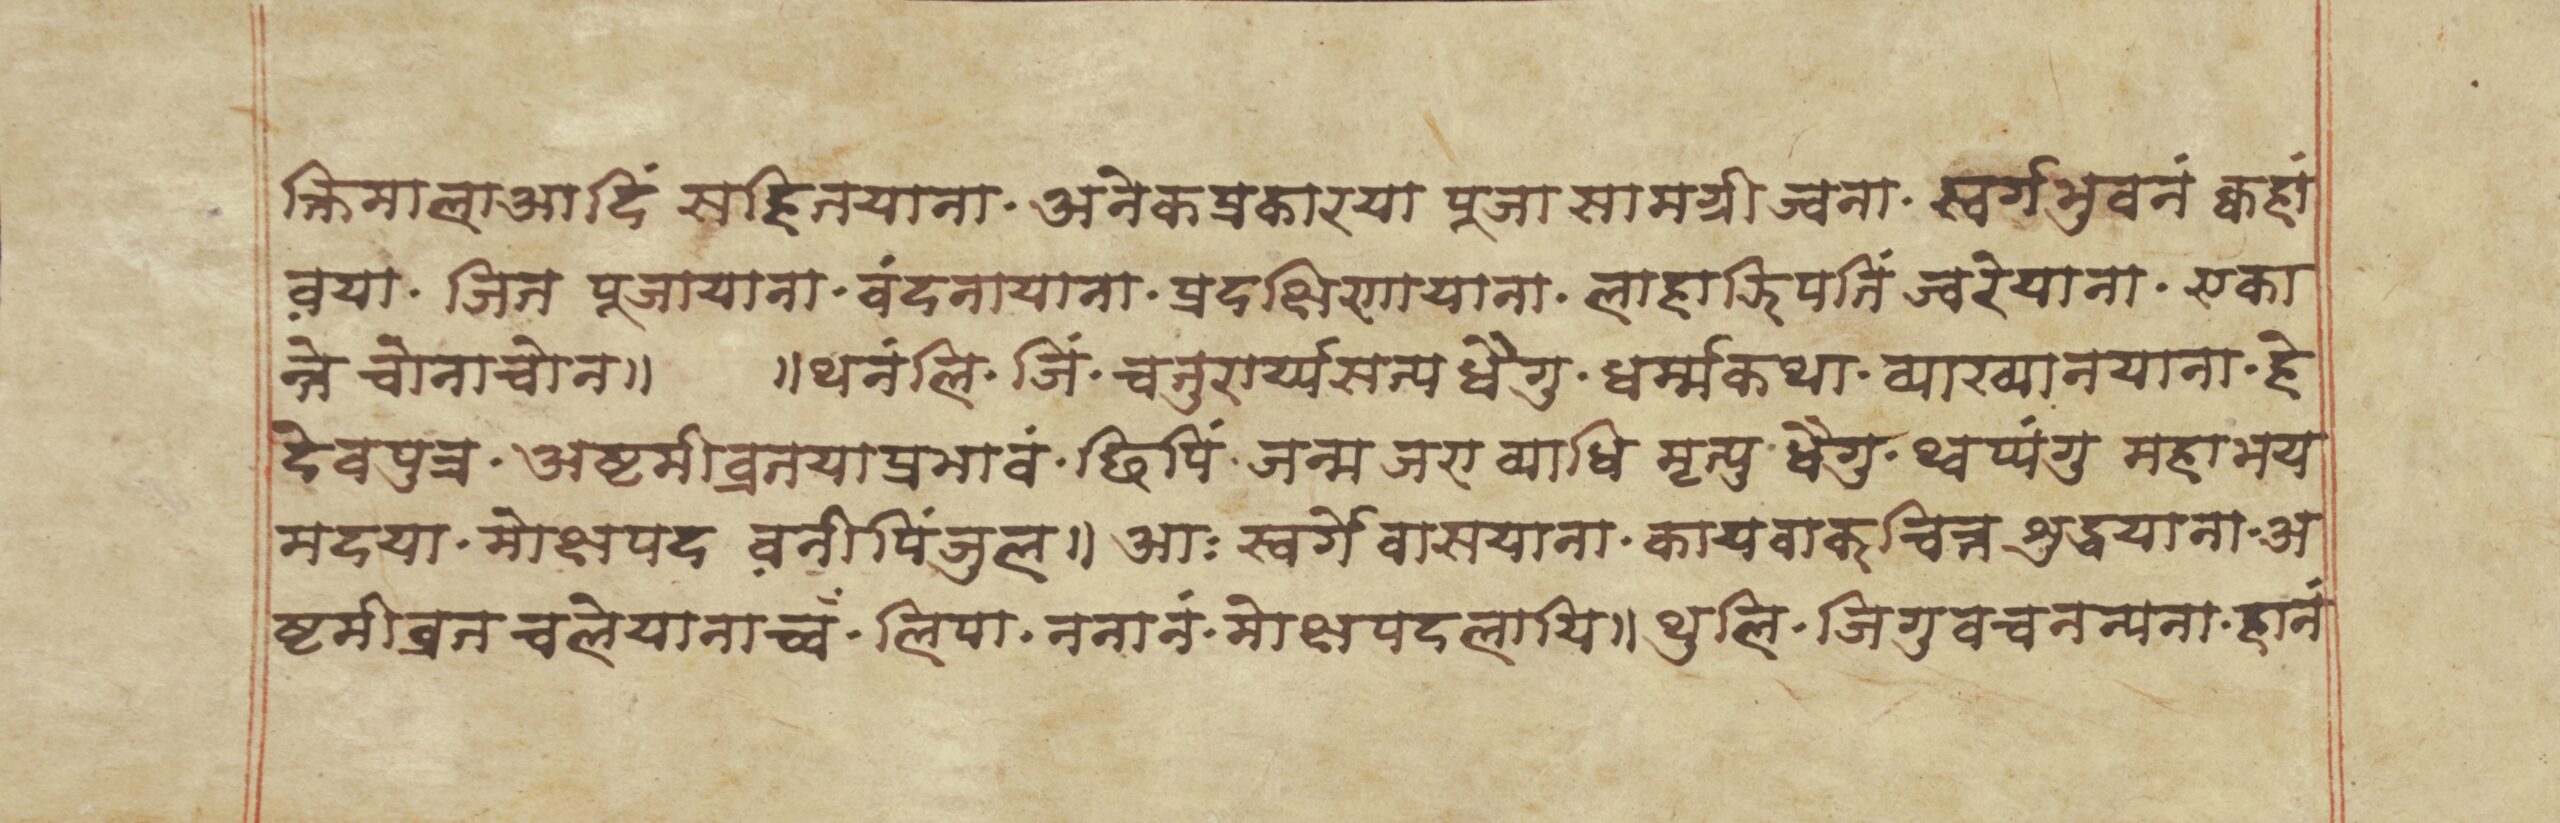 क्तिमालाआदिं सहितयाना· अनेकप्रकारया पूजा सामग्री ज्वना· स्वर्गभुवनं क्वहां
व़या· जित पूजायाना·वंदनायाना· प्रदक्षिणायाना· लाहाज़िपतिं ज्वरेयाना· एका
न्ते चोनाचोन॥ ॥थनंलि· जिं· चतुरार्य्यसत्य धैगु· धर्म्मकथा· व्याख्यानयाना·हे
देवपुत्र· अष्टमीव्रतयाप्रभावं· छिपिं· जन्म जरा व्याधि मृत्यु धैगु· थ्वप्यंगु महाभय
मदया· मोक्षपद व़नीपिंजुल॥ आः स्वर्गे वासयाना· कायवाक्चित्त शुद्धयाना·अ
ष्टमीव्रत चलेयानाच्वं· लिपा· ननानं· मोक्षपदलायि॥ थुलि· जिगुवचनन्यना·हानं